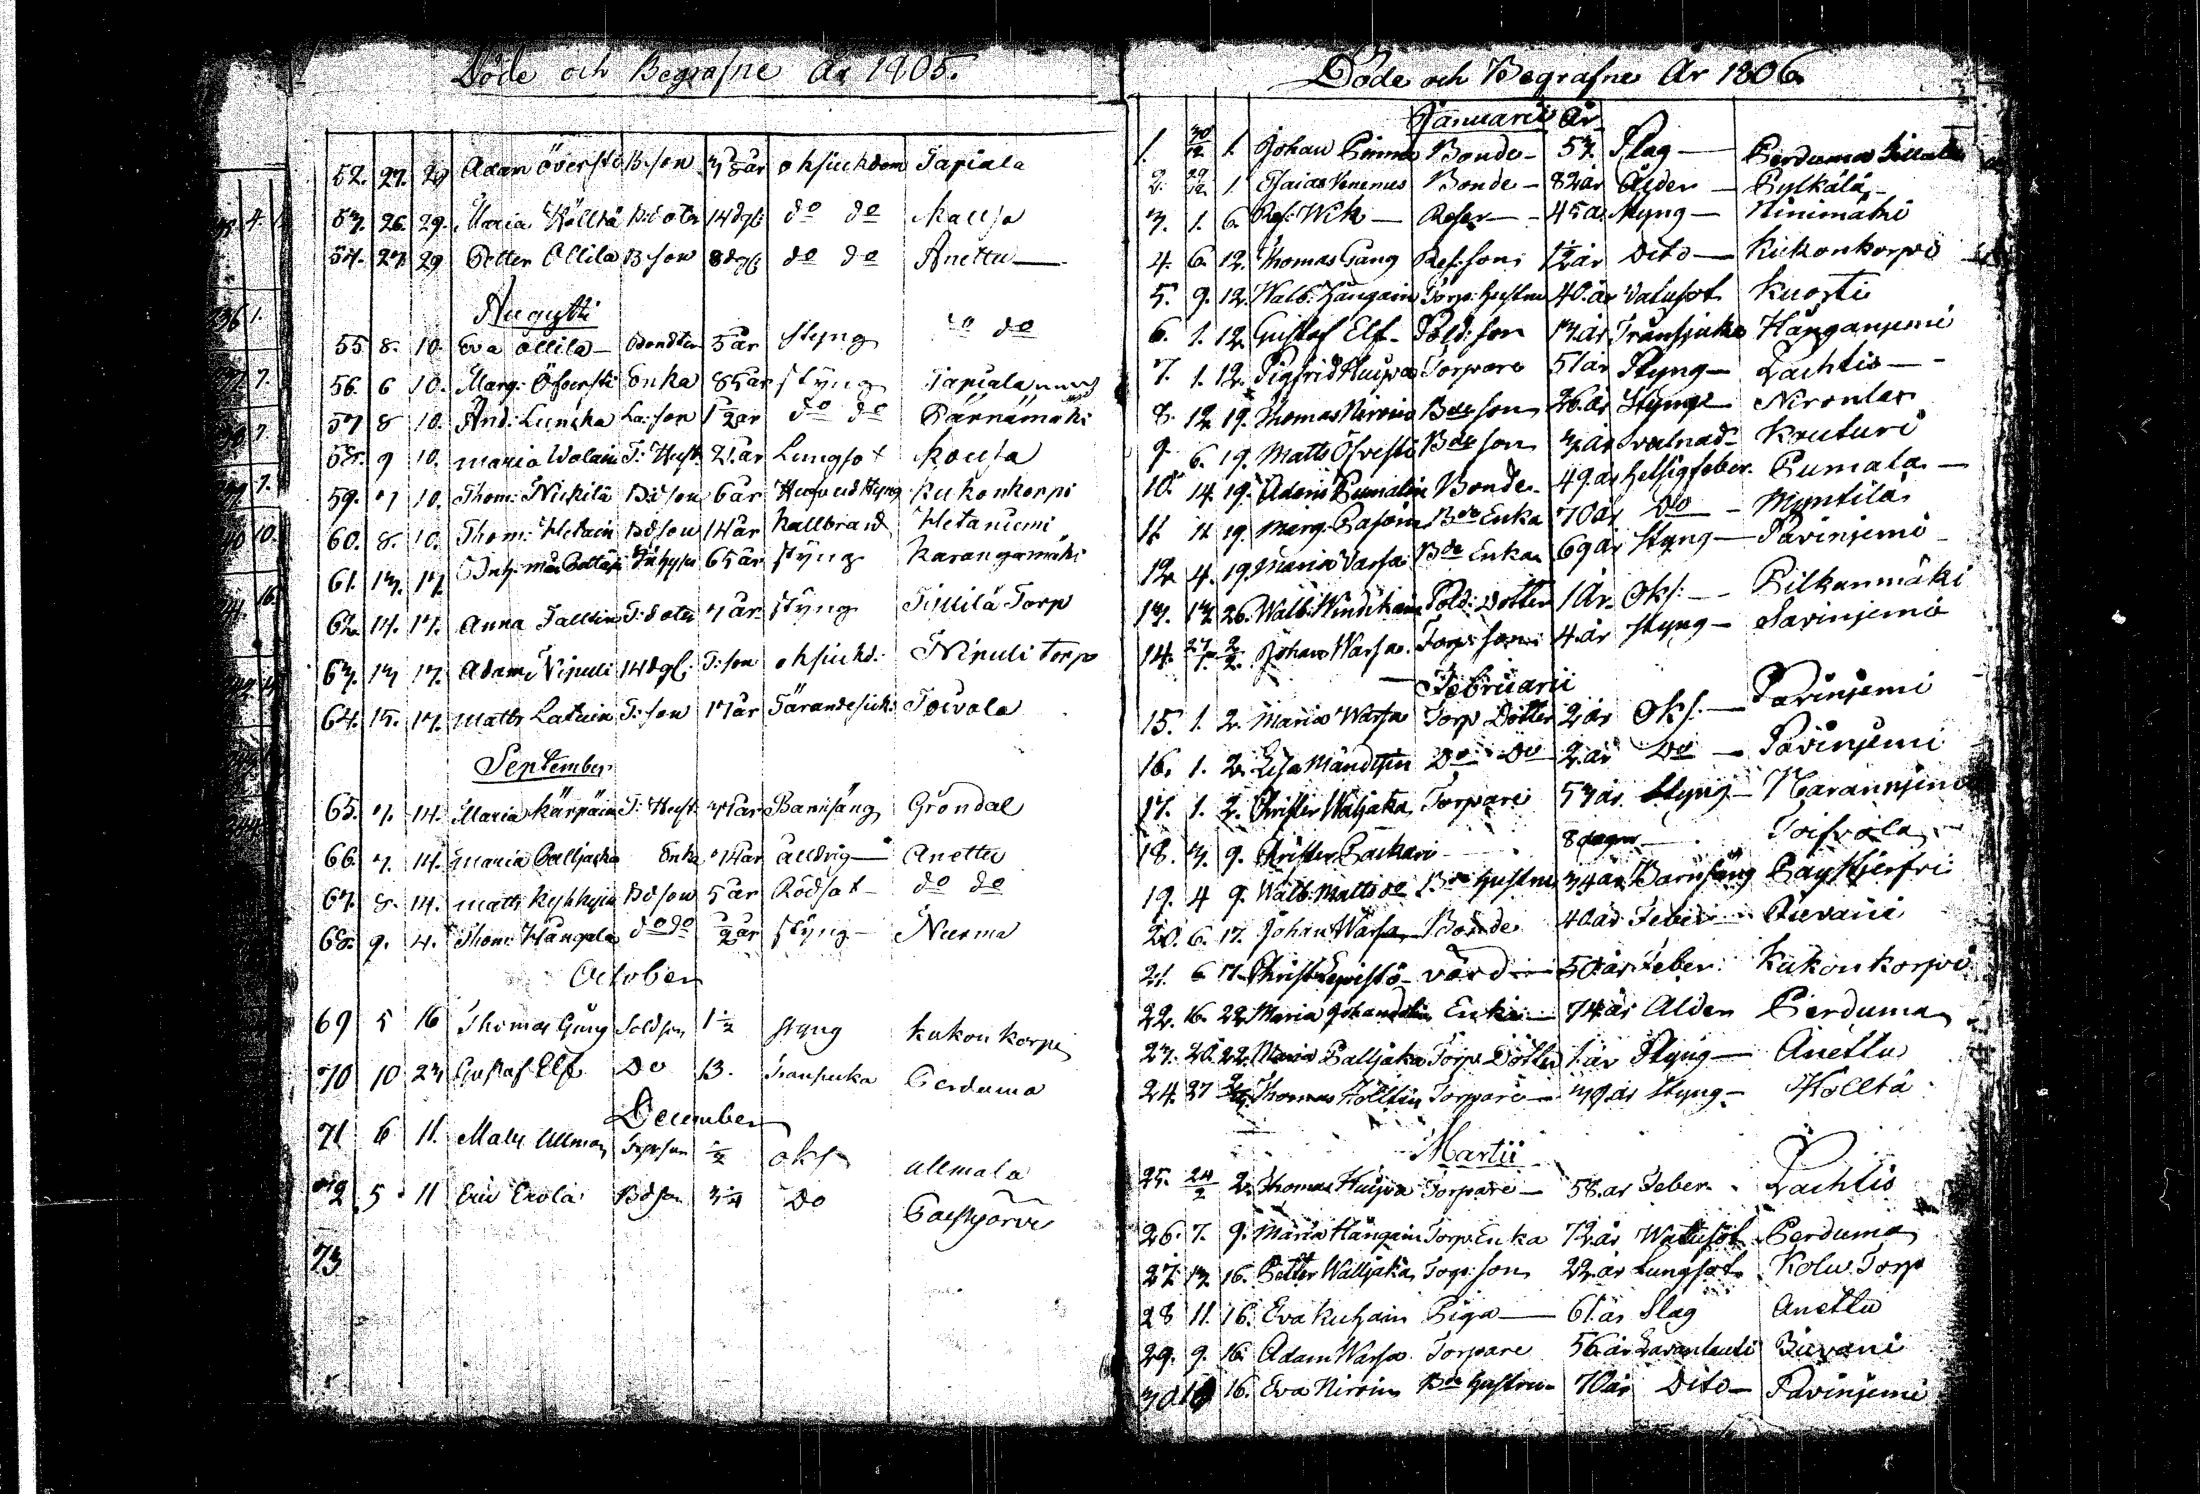 Döde och Begrafne År 1805.
52. 27. 29 Adam Öfversti B:son 3 1/2 år oksiukdom Tapiala
53. 26. 29. Maria Hölltä B:doter 14 dgl: do do Mallja
54. 27. 29 Petter Ollila B:son 8 dgl: do do Anettu
Augusti
55 8. 10. Eva Ollila Bondter 5 år styng do do
56. 6 10. Marg: Öfversti Enka 85 år styng Tapiala
57 8 10. And: Lunska La:son 1 1/2 år do do Pärnämäki
58. 9 10. Maria Wolain T: Hust. 21 år Lungsot
59. 7 10. Thom: Nickilä Bdson 6 år Hufvud styng Kukonkorpi
60. 8. 10. Thom: Hetain Bdson 14 år Kallbrand Hetaniemi
61. 13. 17. Inhysm 65 år styng Karangamäki
62. 14. 17. Anna T:doter 7 år styng Torp
63. 13 17. Adam Nipuli 14 dgl. T:son oksiukd: Nipuli Torp
64. 15. 17. Matts Latuin T:son 17 år Tärandesiuk: Toivola
September
65. 7. 14. Maria Kärpäin T: Hust. 34 år Barnsäng Gröndal
66. 7. 14. Maria Palljacka Enka 74 år ålldrig Anettu
67. 8. 14. Matts Kyhkyin Bdson 5 år Rödsot do do
68. 9. 14. Thom: Hängala do do 1/2 år styng Nurma
October
69 5 16 Thomas Gäng Soldson 1 1/2 styng Kukonkorpi
70 10 23 Gustaf Elf Do 13. Transiuka Perduma
December
71 6 11. Matts Ullman Torpson 1/2 oks Ullmala
72 5 11 Eric Erola Bdson 3/4 Do Paskjärvi
73
Döde och Begrafne År 1806.
Januarii År
1. 30/12 1. Johan Pimmo Bonde 53. Slag Perduma
2. 29/12 1 Esaias Venenus Bonde 82 år Ålder Pylkälä
3. 1. 6. Ref: Wik Refer 45 år Styng Ninimäki
4. 6. 12. Thomas Gäng Ref:son 1 1/2 år Dito Kukonkorpi
5. 9. 12. Walb: Hängain Torp: Hustru 40 år Vatusot Kuosti
6. 1. 12. Gustaf Elf Sold:son 13 år Transjuka Hänganjemi
7. 1. 12. Sigfrid Huspa Torpare 51 år Styng Lachtis
8. 12 19. Thomas Nirvin Bde son 26 år Styng Nironlax
9. 6. 19. Matts Öfversti Bde son 3 år Svulnad Kruturi
10. 14. 19. Adam Pumalin Bonde 49 år Hetsigfeber Pumala
11. 11 19. Marg: Pasoin Bde Enka 70 år Do Myntilä
12 4. 19. Maria Varsa Bde Enka 69 år Styng Pavinjemi
13. 13. 26. Walb: Sold: Dotter 1 År Oks: Pilkanmäki
14. 27/1 2/2. Johan Warsa Torp: son 4 år Styng Savinjemi
Februarii
15. 1. 2. Maria Warsa Torp Dotter 2 år Oks: Pavinjemi
16. 1. 2. Lisa Mändyin Do Do 2 år Do Pavinjemi
17. 1. 2. Christer Wäljaka Torpare 53 år Styng Harannjemi
18. 3. 9. Christer Packari 8 dagar Toifvola
19. 4 9. Walb: Bde Hustru 34 år Barnsäng
20. 6. 17. Johan Warsa Bonde 40 år Feber Puvani
21. 6 17. Christ: Lepistö värd 50 år Feber Kukonkorpi
22. 16. 22. Maria Enka 74 år Ålder Perduma
23. 20. 22. Maria Palljaka Torp: Dotter 1 år Styng Anettu
24. 27 2/3. Thomas Hölttin Torpare 30 år Styng Hölltä
Martii
25. 24/2 2. Thomas Huspa Torpare 58 år Feber Lachtis
26. 7. 9. Maria Hängain Torp: Enka 72 år Watusot Perduma
27. 13. 16. Petter Walljaka Torp: son 22 år Lungsot Kolu Torp
28 11. 16. Eva Kuhain Piga 61 år Slag Anettu
29. 9. 16. Adam Warsa Torpare 56 år Puvani
30. 10 16. Eva Nirvin Bde Hustru 70 år Dito Pavinjemi